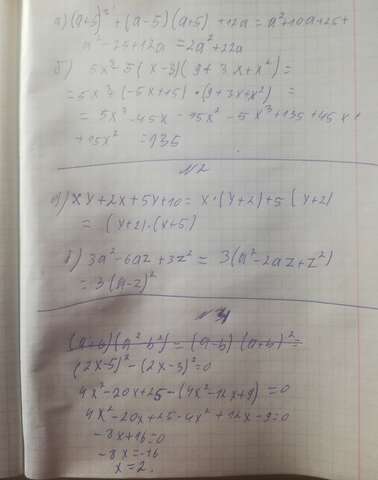 а) (a+5)² + (a-5)(a+5) + 12a = a²+10a+25+
a²-25+12a = 2a²+22a
б) 5x³-5(x-3)(9+3x+x²)=
=5x³+(-5x+15)·(9+3x+x²) =
= 5x³-45x-15x²-5x³+135+45x+
+15x² =135
N2
а) xy+2x+5y+10= x·(y+2)+5(y+2)
= (y+2)·(x+5)
б) 3a²-6az+3z² = 3(a²-2az+z²)
=3(a-z)²
N 3
(a+b)(a²-b²)=(a-b)(a+b)²=
(2x-5)²-(2x-3)²=0
4x²-20x+25-(4x²-12x+9)=0
4x²-20x+25-4x²+12x-9=0
-8x+16=0
-8x=-16
x=2.